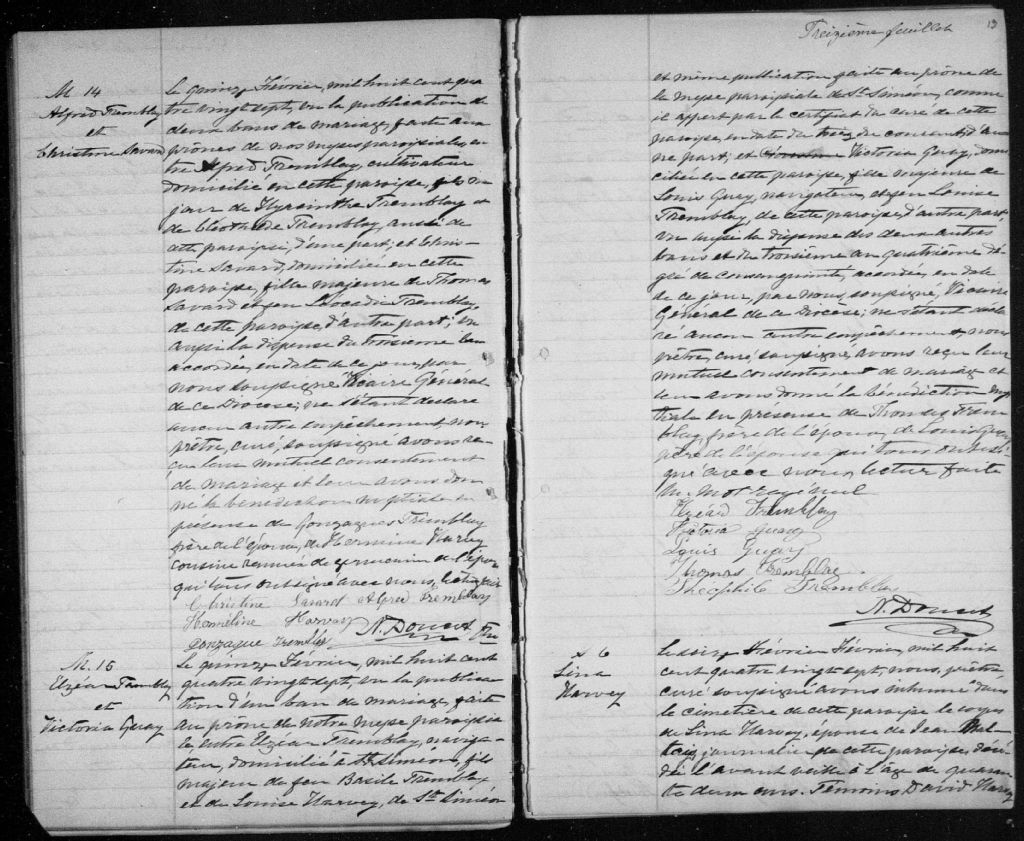 M 14
Alfred Tremblay
et
Christine Savard
Le quinze Février, mil huit cent qua
tre vingt sept, vu la publication de
deux bans de mariage, faite aux
prônes de nos messes paroissiales, en
tre Alfred Tremblay, cultivateur
domicilié en cette paroisse, fils ma
jeur de Hyacinthe Tremblay et
de Clotilde Tremblay, aussi de
cette paroisse, d'une part; et Chris-
tine Savard, domiciliée en cette
paroisse, fille majeure de Thomas
Savard et feu Léocadie Tremblay,
de cette paroisse, d'autre part; vu
aussi la dispense du troisième ban
accordée, en date de ce jour, par
nous soussigné Vicaire Général
de ce Diocese; ne s'étant déclaré
aucun autre empêchement nous
prêtre, curé, soussigné avons re-
çu leur mutuel consentement
de mariage et leur avons don
né la bénédiction nuptiale en
présence de Gonzagues Tremblay
frère de l'époux, de Herméline Harvey
cousine issue de germain de l'époux
qui tous ont signé avec nous, lecture faite
Christine Savard Alfred Tremblay
Herméline Harvay
Gonzague Tremblay N. Doucet Ptre
M. 15
Elzéar Tremblay
et
Victoria Guay
Le quinze Février, mil huit cent
quatre vingt sept, vu la publica
tion d'un ban de mariage, faite
au prône de notre messe paroissia
le, entre Elzéar Tremblay, naviga-
teur, domicilié à St Siméon, fils
majeur de feu Basile Tremblay
et de Louise Harvey, de St Siméon
Treizième feuillet
13
et même publication faite au prône de
la messe paroissiale de St. Siméon, comme
il appert par le certificat du curé de cette
paroisse, en date du treize du courant, d'u
ne part; et Victoria Guay, domi
ciliée en cette paroisse, fille majeure de
Louis Guay, navigateur, et feu Louise
Tremblay, de cette paroisse, d'autre part,
vu aussi la dispense des deux autres
bans et du troisième au quatrième dé-
gré de consanguinité, accordée, en date
de ce jour, par nous, soussigné, Vicaire
Général de ce Diocese; ne s'étant décla
ré aucun autre empêchement, nous
prêtre, curé, soussigné, avons reçu leur
mutuel consentement de mariage et
leur avons donné la bénédiction nup
tiale en présence de Thomas Trem
blay, frère de l'époux, de Louis Guay
père de l'épouse qui tous ont si-
gné avec nous, lecture faite
Un mot rayé nul
Elzéar Tremblay
Victoria Guay
Louis Guay
Thomas Tremblay
Théophile Tremblay
N. Doucet
S 6
Lina
Harvey
Le seize Février Février, mil huit
cent quatre vingt sept, nous, prêtre,
curé soussigné avons inhumé dans
le cimetière de cette paroisse le corps
de Lina Harvey, épouse de Jean
journalier de cette paroisse, décé
dé l'avant veille à l'âge de quaran
te deux ans. Témoins, David Harvey